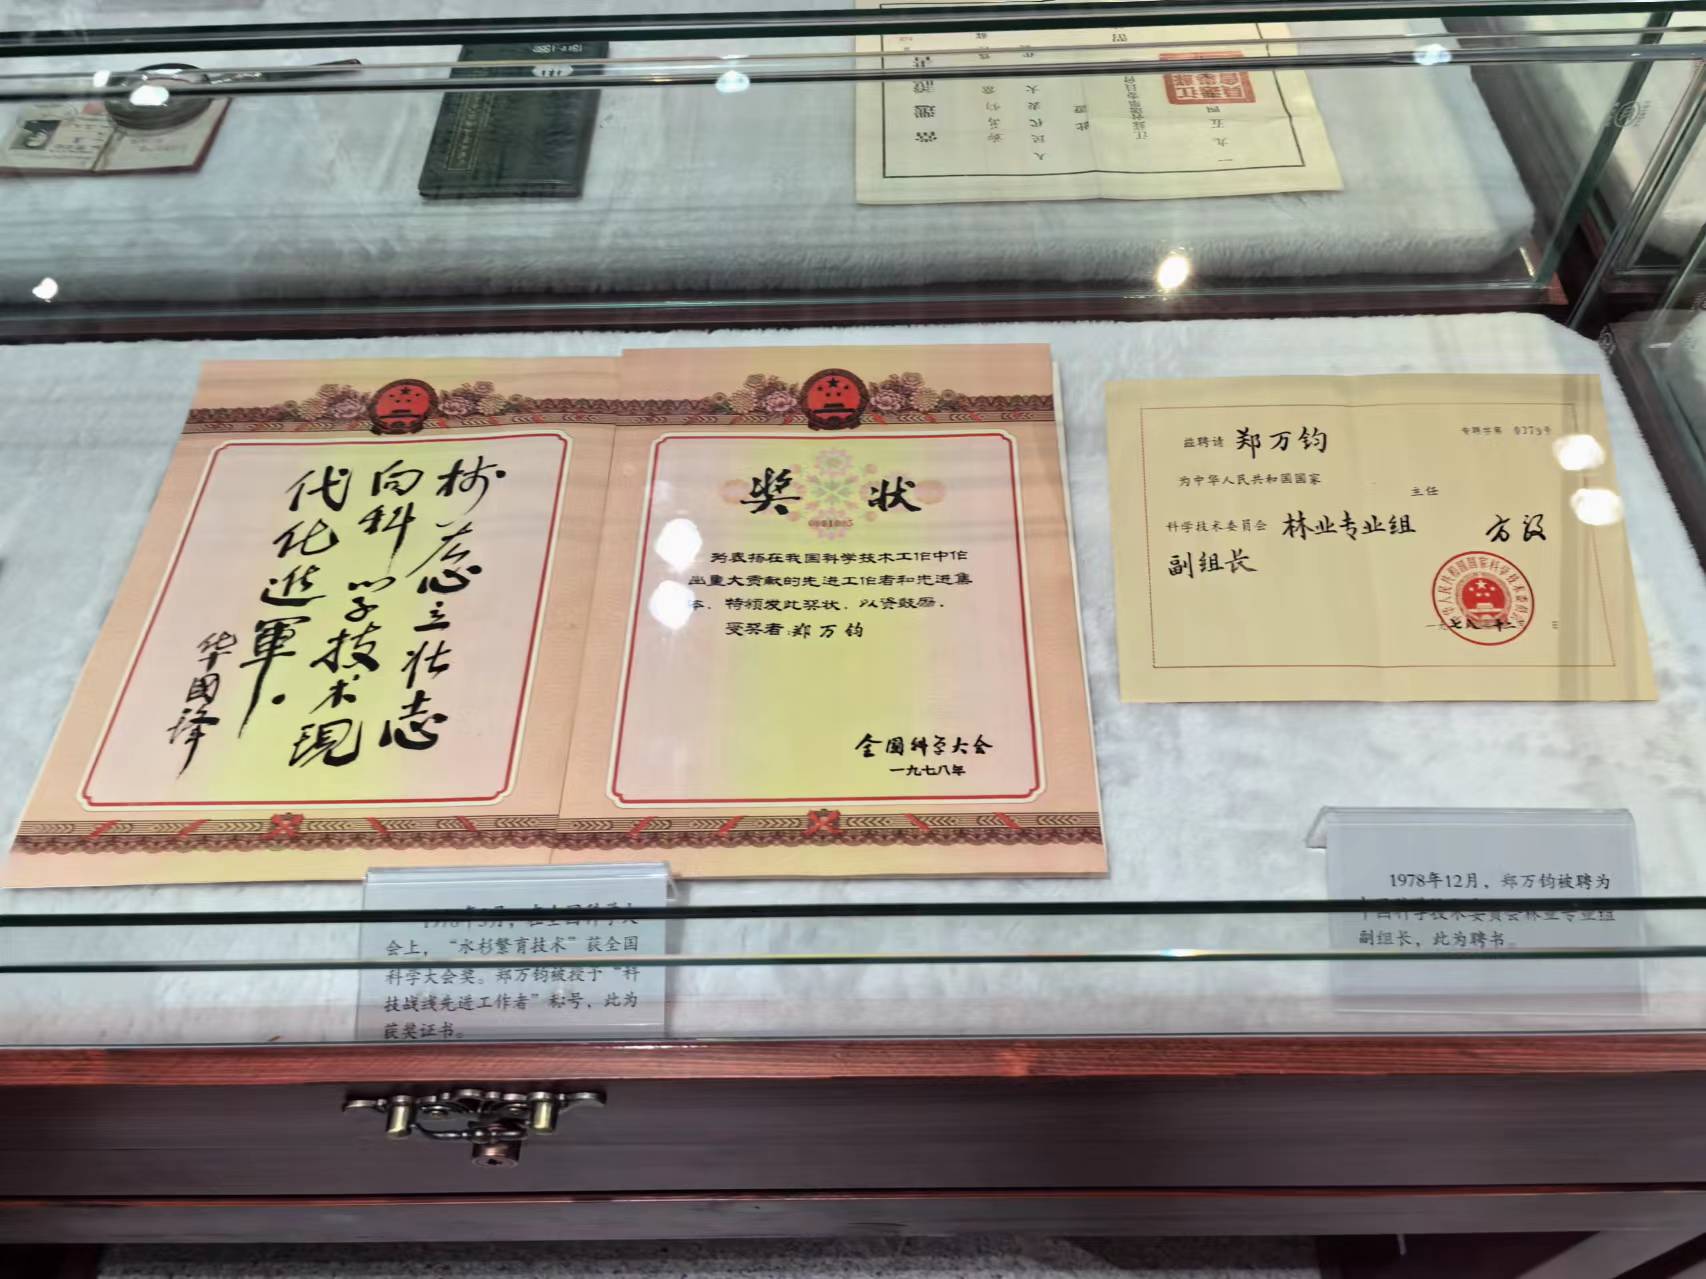 树雄心立壮志
向科学技术现
代化进軍.
华国锋
奖状
0001005
为表扬在我国科学技术工作中作
出重大贡献的先进工作者和先进集
体，特颁发此奖状，以资鼓励。
受奖者:郑万钧
全国科学大会
一九七八年
兹聘请 郑万钧
为中华人民共和国国家
科学技术委员会 林业专业组
副组长
专聘字第 0379号
主任
方毅
中华人民共和国国家科学技术委员会
会上，“水杉繁育技术”获全国
科学大会奖。郑万钧被授予“科
技战线先进工作者”称号，此为
获奖证书。
1978年12月，郑万钧被聘为
中国科学技术委员会林业专业组
副组长，此为聘书。